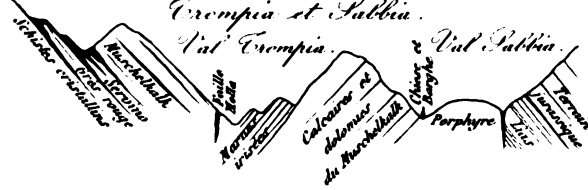 Trompia et Sabbia.
Val Trompia.
Val Sabbia.
Schistes cristallins
Grès rouge
Servino
Muschelkalk
Faille
Mella
Marnes
irisées
Calcaires et
dolomies
du Muschelkalk
Chiese et
Barghe
Porphyre
Lias
Terrain
jurassique